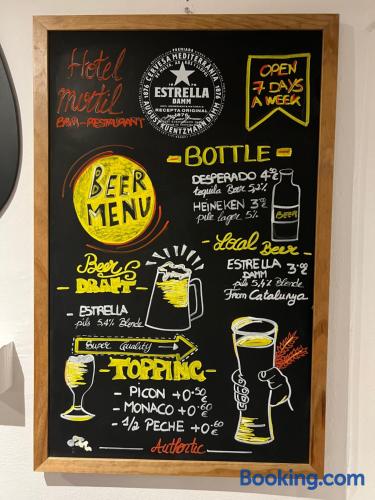 Hotel
Mortil
BAR - RESTAURANT
CERVESA MEDITERRÀNIA
1876
ESTRELLA
DAMM
RECEPTA ORIGINAL
1876
AUGUST KUENTZMANN DAMM
OPEN
7 DAYS
A WEEK
BEER
MENU
- BOTTLE -
DESPERADO 4€
tequila Beer
HEINEKEN 3€
lager 5%
BEER
- Local Beer -
ESTRELLA 3€
DAMM
pils 5,4% Blonde
From Catalunya
Beers
DRAFT -
- ESTRELLA
pils 5,4% Blonde
Super Quality
- TOPPING -
- PICON +0.50€
- MONACO +0.60€
- 1/2 PECHE +0.60€
Authentic
Booking.com